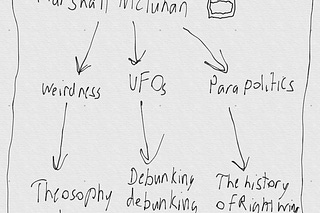 Marshall McLuhan
Weirdness
UFOs
Parapolitics
Theosophy
Debunking
debunking
The history
of Right wing